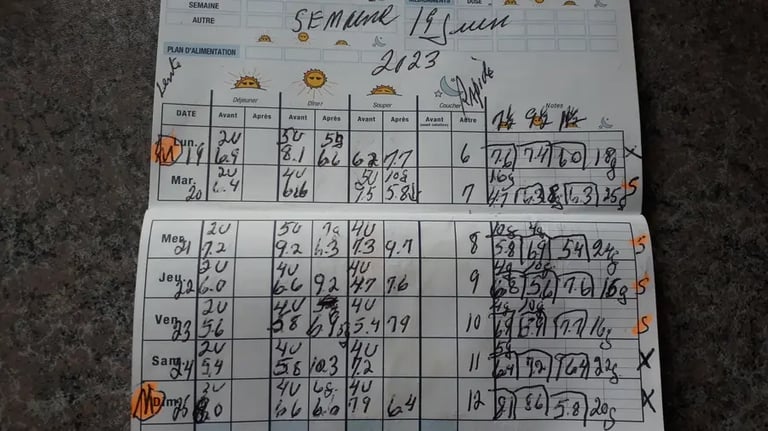 SEMAINE
AUTRE
DOSE
SEMAINE 19 Juin
2023
PLAN D'ALIMENTATION
Rapide
Déjeuner Dîner Souper Coucher Notes
DATE Avant Après Avant Après Avant Après Avant Autre
2U 5U 5g
Lun. 19 6.9 8.1 6.6 6.2 7.7 6 7.6 7.4 6.0 18g X
2U 4U 5U 10g 16g
Mar. 20 6.4 6.6 7.5 5.8 7 4.7 6.3 25g S
2U 5U 7g 4U 4g
Mer 21 7.2 9.2 6.3 7.3 9.7 8 5.8 6.9 5.4 24g S
2U 4U 4U 4g 10g
Jeu 22 6.0 6.6 9.2 4.7 7.6 9 6.8 5.6 7.6 16g S
2U 4U 4U
Ven 23 5.6 5.8 6.9 5.4 7.9 10 6.9 5.9 7.7 16g S
2U 4U 4U 5g
Sam 24 5.4 5.8 10.3 7.2 11 6.4 7.2 7.64 22g X
2U 4U 6g 4U
M Dim 25 6.6 6.0 7.9 6.4 12 8.1 8.6 5.8 20g X